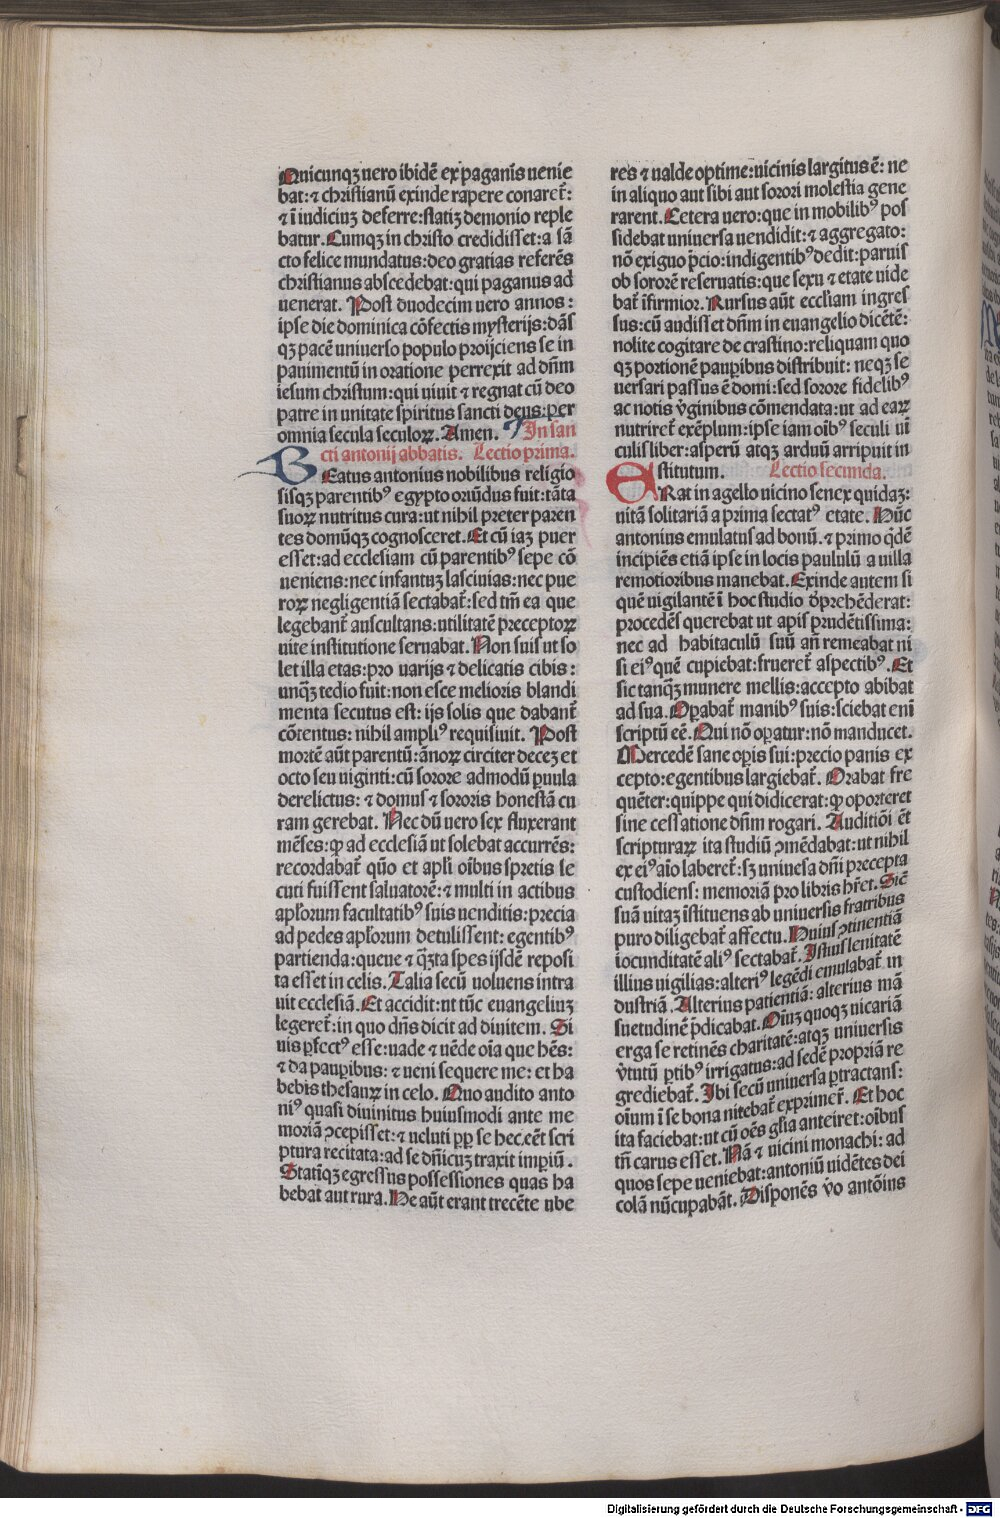 Quicunqꝫ uero ibidē ex paganis uenie
bat: ⁊ christianū exinde rapere conaret̄:
⁊ ī iudiciuꝫ deferre: statiꝫ demonio reple
batur. Cumqꝫ in christo credidisset: a sā
cto felice mundatus: deo gratias referēs
christianus abscedebat: qui paganus ad
uenerat. Post duodecim uero annos:
ipse die dominica cōfectis mysterijs: dās
qꝫ pacē uniuerso populo proijciens se in
pauimentū in oratione perrexit ad dn̄m
iesum christum: qui uiuit ⁊ regnat cū deo
patre in unitate spiritus sancti deus: per
omnia secula seculoꝝ. Amen. In san
cti antonij abbatis. Lectio prima.
BEatus antonius nobilibus religio
sisqꝫ parentibꝰ egypto oriūdus fuit: tāta
suoꝝ nutritus cura: ut nihil preter paren
tes domūqꝫ cognosceret. Et cū iaꝫ puer
esset: ad ecclesiam cū parentibꝰ sepe cō
ueniens: nec infantuꝫ lasciuias: nec pue
roꝝ negligentiā sectabat̄: sed tm̄ ea que
legebant̄ auscultans: utilitatē preceptoꝝ
uite institutione seruabat. Non suis ut so
let illa etas: pro uarijs ⁊ delicatis cibis:
unq̄ꝫ tedio fuit: non esce melioris blandi
menta secutus est: ijs solis que dabant̄
cōtentus: nihil ampliꝰ requisiuit. Post
mortē aūt parentū: ānoꝝ circiter deceꝫ et
octo seu uiginti: cū sorore admodū ꝑuula
derelictus: ⁊ domus ⁊ sororis honestā cu
ram gerebat. Nec dū uero sex fluxerant
mēses: ꝙ ad ecclesiā ut solebat accurrēs:
recordabat̄ quō et apl̄i oībus spretis se
cuti fuissent saluatorē: ⁊ multi in actibus
apl̄orum facultatibꝰ suis uenditis: precia
ad pedes apl̄orum detulissent: egentibꝰ
partienda: queue ⁊ q̄ꝫta spes ijsdē reposi
ta esset in celis. Talia secū uoluens intra
uit ecclesiā. Et accidit: ut tūc euangeliuꝫ
legeret̄: in quo dn̄s dicit ad diuitem. Si
uis ꝑfectꝰ esse: uade ⁊ uēde oīa que hēs:
⁊ da pauꝑibus: ⁊ ueni sequere me: et ha
bebis thesauꝝ in celo. Quo audito anto
niꝰ quasi diuinitus huiusmodi ante me
moriā ↄcepisset: ⁊ ueluti ꝓꝑ se hec eēt scri
ptura recitata: ad se dn̄icuꝫ traxit imꝑiū.
Statiꝫ egressus possessiones quas ha
bebat aut rura. Ne aūt erant trecēte ube
res ⁊ ualde optime: uicinis largitus ē: ne
in aliquo aut sibi aut sorori molestia gene
rarent. Cetera uero: que in mobilibꝰ pos
sidebat uniuersa uendidit: ⁊ aggregato:
nō exiguo p̄cio: indigentibꝰ dedit: paruis
ob sororē reseruatis: que sexu ⁊ etate uide
bat̄ īfirmior. Rursus aūt eccl̄iam ingres
sus: cū audisset dn̄m in euangelio dicētē:
nolite cogitare de crastino: reliquam quo
qꝫ portionē pauꝑibus distribuit: neqꝫ se
uersari passus ē domi: sed sorore fidelibꝰ
ac notis v̄ginibus cōmendata: ut ad eaꝝ
nutriret̄ exēplum: ipse iam oībꝰ seculi uī
culis liber: asperū atqꝫ arduū arripuit in
stitutum. Lectio secunda.
ERat in agello uicino senex quidaꝫ:
uitā solitariā a prima sectatꝰ etate. Hūc
antonius emulatus ad bonū. ⁊ primo q̄dē
incipiēs etiā ipse in locis paululū a uilla
remotioribus manebat. Exinde autem si
quē uigilantē ī hoc studio ꝯprehēderat:
procedēs querebat ut apis prudētissima:
nec ad habitaculū suū añ remeabat ni
si eiꝰ quē cupiebat: frueret̄ aspectibꝰ. Et
sic tanq̄ꝫ munere mellis: accepto abibat
ad sua. Oꝑabat̄ manibꝰ suis: sciebat enī
scriptū eē. Qui nō oꝑatur: nō manducet.
Mercedē sane oꝑis sui: precio panis ex
cepto: egentibus largiebat̄. Orabat fre
quēter: quippe qui didicerat: ꝙ oporteret
sine cessatione dn̄m rogari. Auditiōi ēt
scripturaꝝ ita studiū ↄmēdabat: ut nihil
ex eiꝰ aīo laberet̄: sꝫ uniuesa dn̄i precepta
custodiens: memoriā pro libris hr̄et. Sic̄
suā uitaꝫ īstituens ab uniuersis fratribus
puro diligebat̄ affectu. Huius ↄtinentiā
iocunditatē aliꝰ sectabat̄. Istius lenitatē
illius uigilias: alteriꝰ legēdi emulabat̄ in
dustriā. Alterius patientiā: alterius mā
suetudinē p̄dicabat. Oīuꝫ quoqꝫ uicariā
erga se retinēs charitatē: atqꝫ uniuersis
v̄tutū ꝑtibꝰ irrigatus: ad sedē propriā re
grediebat̄. Ibi secū uniuersa ꝑtractans:
oīum ī se bona nitebat̄ exprimer̄. Et hoc
ita faciebat: ut cū oēs gl̄ia anteiret: oībus
tn̄ carus esset. Nā ⁊ uicini monachi: ad
quos sepe ueniebat: antoniū uidētes dei
colā nūcupabāt. Disponēs v̄o antōius
Digitalisierung gefördert durch die Deutsche Forschungsgemeinschaft - DFG